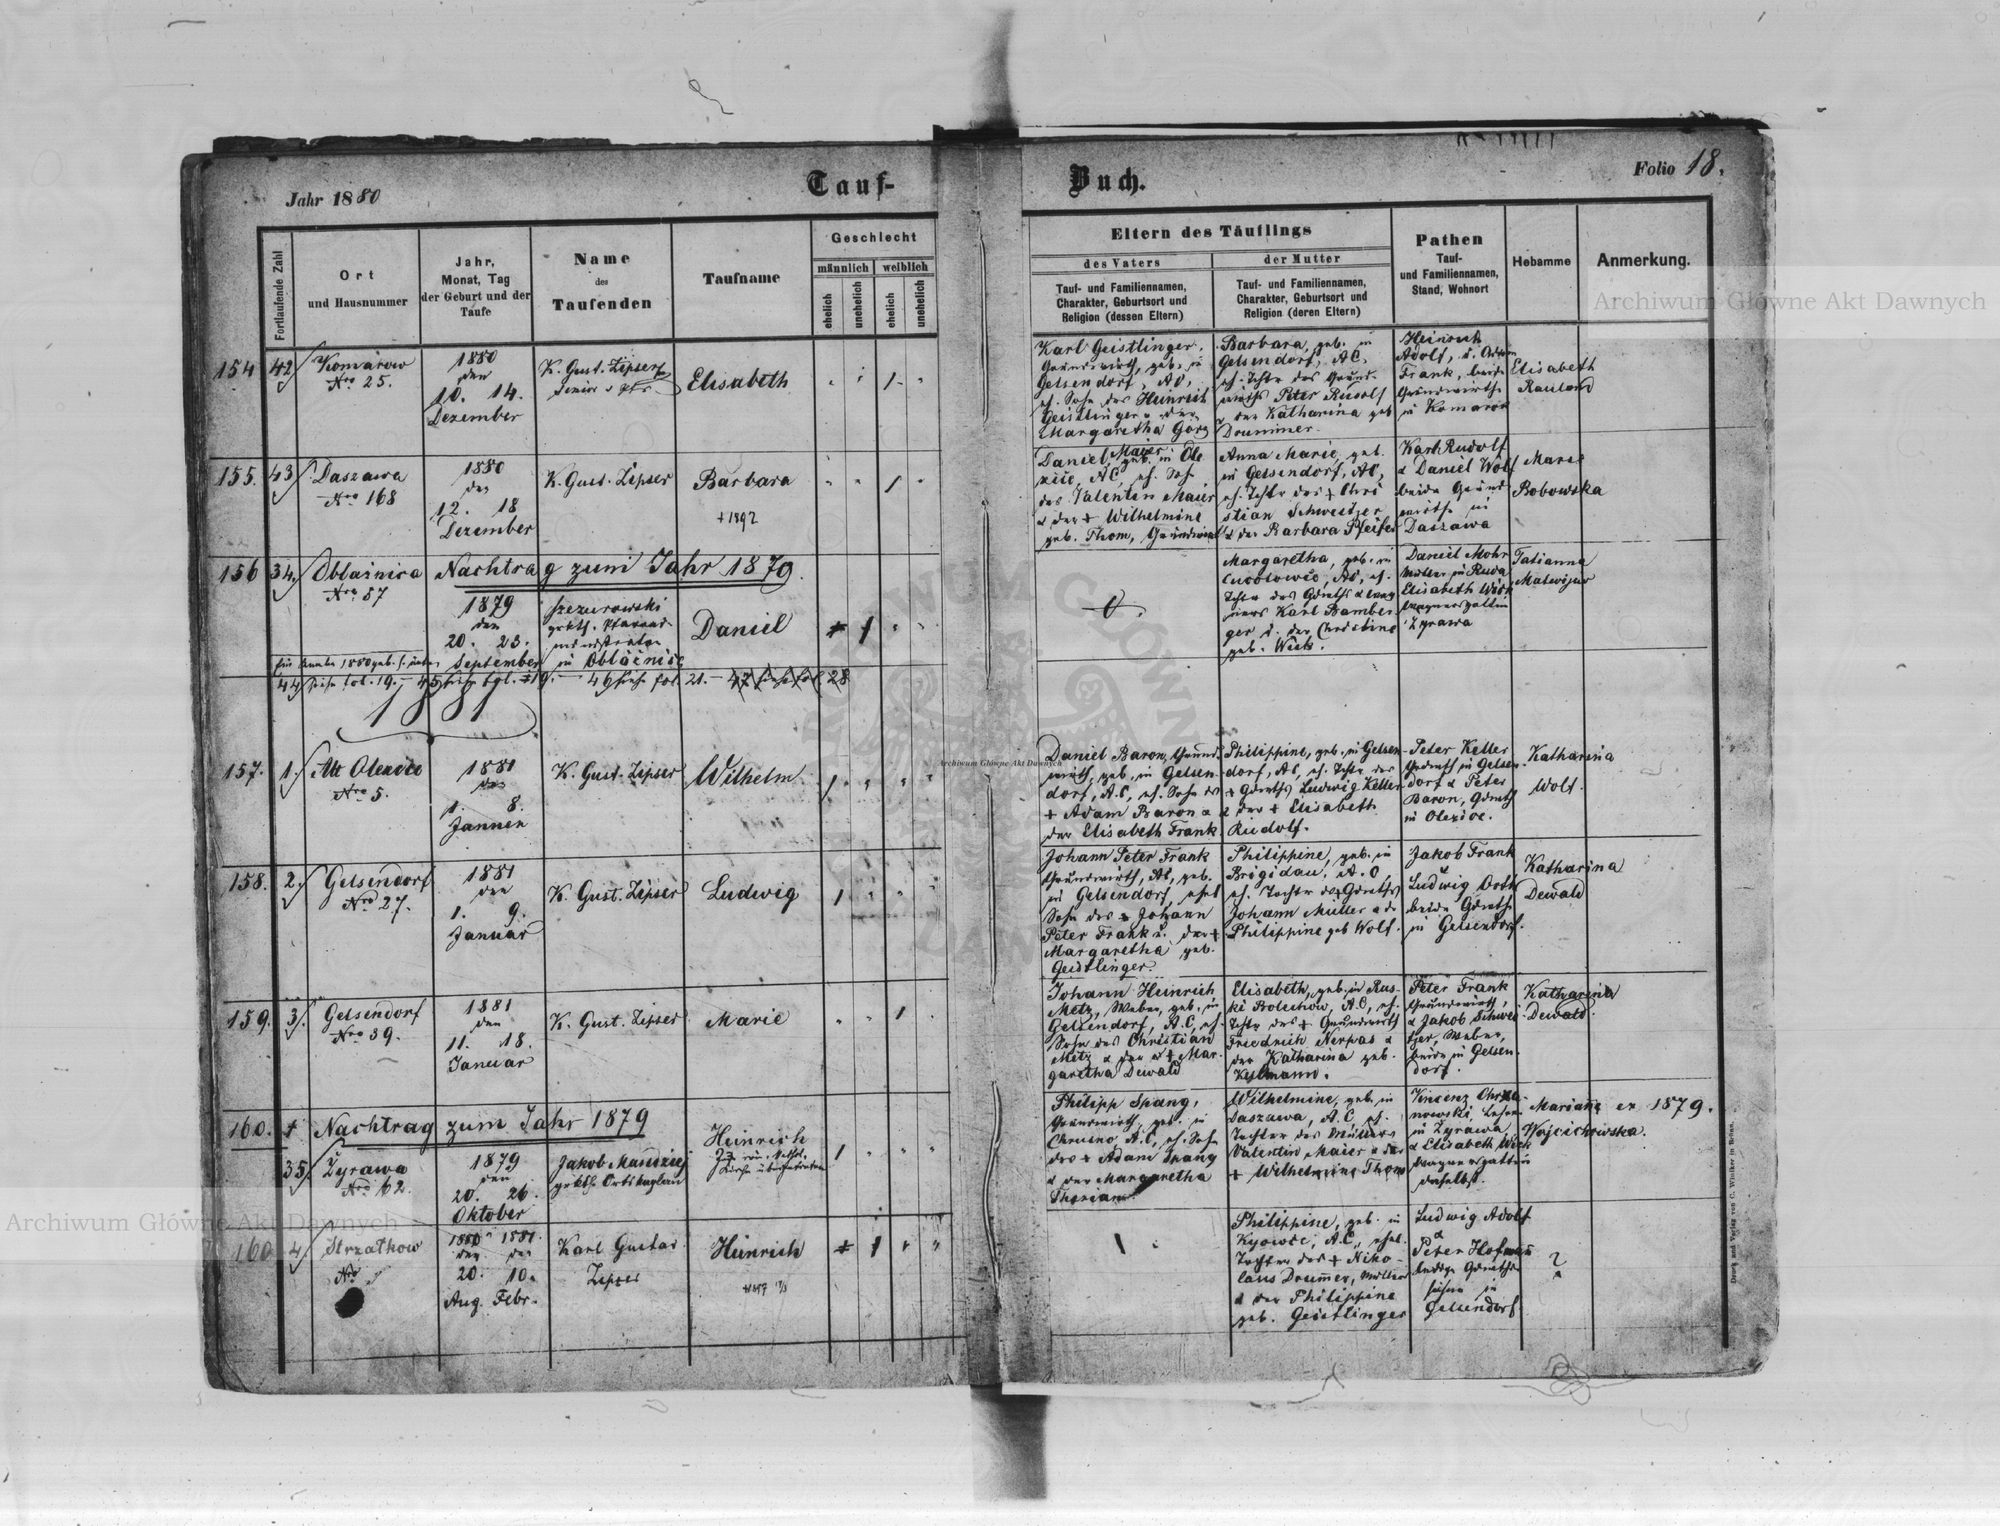 Jahr 1880
Tauf-
Buch.
Folio 18.
Fortlaufende Zahl
Ort
und Hausnummer
Jahr,
Monat, Tag
der Geburt und der
Taufe
Name
des
Taufenden
Taufname
Geschlecht
männlich
weiblich
ehelich
unehelich
ehelich
unehelich
Eltern des Täuflings
des Vaters
Tauf- und Familiennamen,
Charakter, Geburtsort und
Religion (dessen Eltern)
der Mutter
Tauf- und Familiennamen,
Charakter, Geburtsort und
Religion (deren Eltern)
Pathen
Tauf-
und Familiennamen,
Stand, Wohnort
Hebamme
Anmerkung.
154
42
Komarow
Nro 25.
1880
den
10. 14.
Dezember
K. Gust. Zipser
Elisabeth
Karl Geistlinger,
Grundwirth, geb. in
Gelsendorf, AC,
eh. Sohn des Heinrich
Geistlinger u der
Margaretha Görg
Barbara, geb. in
Gelsendorf, AC,
eh. Tochtr des Grund-
wirths Peter Rudolf
u der Katharina geb
Drummer.
Heinrich
Adolf, u. Adam
Frank, beide
Grundwirthe
in Komarow
Elisabeth
Rauland
155.
43
Daszawa
Nro 168
1880
den
12. 18
Dezember
K. Gust. Zipser
Barbara
+1892
Daniel Maier
geb. in Ole
xice, AC, eh. Sohn
des Valentin Maier
u der + Wilhelmine
geb. Thom, Grundwirth
Anna Marie, geb.
in Gelsendorf, AC,
eh. Tochtr des + Chri
stian Schweitzer
u der Barbara Pfeifer
Karl Rudolf
u Daniel Wolf
beide Grund
wirthe in
Daszawa
Marie
Bobowska
156
34.
Oblaznica
Nro 87
Nachtrag zum Jahr 1879.
1879
den
20. 23.
September
Szczurowski
grkth. Pfarrad
ministrator
in Oblaźnica
Daniel
Margaretha, geb. in
AC, eh.
Tochtr des Gdwrths u Wag
ners Karl Bamber
ger u. der Christine
geb. Wiek.
Daniel Mohr
Müller in Ruda
Elisabeth Wiek
Wagnersgattin
Zyrawa
Tatianna
Matwijur
44 siehe fol. 19. – 45 siehe fol. 19. – 46 siehe fol. 21. – 47 siehe fol 28
1881
157.
1.
Alt Olexice
Nro 5.
1881
den
1. 8.
Januar
K. Gust. Zipser
Wilhelm
Daniel Baron, Grund-
wirth, geb. in Gelsen-
dorf, A.C, eh. Sohn ds
+ Adam Baron u
der Elisabeth Frank
Philippine, geb. in Gelsen-
dorf, AC, eh. Tochtr des
+ Gdwrths Ludwig Keller
u der + Elisabeth
Rudolf.
Peter Keller
Gdwrth in Gelsen-
dorf u Peter
Baron, Gdwrth
in Olexice.
Katharina
Wolf.
158.
2.
Gelsendorf
Nro 27.
1881
den
1. 9.
Januar
K. Gust. Zipser
Ludwig
Johann Peter Frank
Grundwirth, AC, geb.
in Gelsendorf, ehel
Sohn des + Johann
Peter Frank u. der +
Margaretha geb.
Geistlinger.
Philippine, geb. in
Brigidau, A.C
eh. Tochter des Gdwrths
Johann Müller u dr
Philippine geb Wolf.
Jakob Frank
u
Ludwig Orth
beide Gdwrthe
in Gelsendorf.
Katharina
Dewald
159.
3.
Gelsendorf
Nro 39.
1881
den
11. 18.
Januar
K. Gust. Zipser
Marie
Johann Heinrich
Metz, Weber, geb. in
Gelsendorf, A.C, eh.
Sohn des Christian
Metz u der + Mar-
garetha Dewald
Elisabeth, geb. in Rus-
ki Bolechow, A.C, eh.
Tochtr des + Grundwirth
Friedrich Nerpas u
der Katharina geb.
Kullmann.
Peter Frank
Grundwirth,
u Jakob Schwei
tzer, Weber,
beide in Gelsen-
dorf.
Katharina
Dewald.
160.
+
Nachtrag zum Jahr 1879
35.
Żyrawa
Nro 62.
1879
den
20. 26.
Oktober
grkth. Ortskaplan
Heinrich
Philipp Spang,
Grundwirth, geb. in
A.C, eh. Sohn
des + Adam Spang
u der Margaretha
Wilhelmine, geb. in
Daszawa, A.C eh.
Tochter des Müllers
Valentin Maier u der
+ Wilhelmine Thom
in Zyrawa
u Elisabeth Wiek
Wagnersgattin
daselbst.
Marianne
Wojcichowska.
ex 1879.
160
4.
Strzałkow
Nro
1880 1881.
den den
20. 10.
Aug. Febr.
Karl Gustav
Zipser
Heinrich
Philippine, geb. in
A.C, ehel.
Tochter des + Niko
laus Drumer, Müller
u der Philippine
geb. Geistlinger
Ludwig Adolf
u
Peter Hofmann
ledige Gdwrths-
söhne in
Gelsendorf
?
Druck und Verlag von C. Winiker in Brünn.
Archiwum Główne Akt Dawnych
Archiwum Główne Akt Dawnych
Archiwum Główne Akt Dawnych